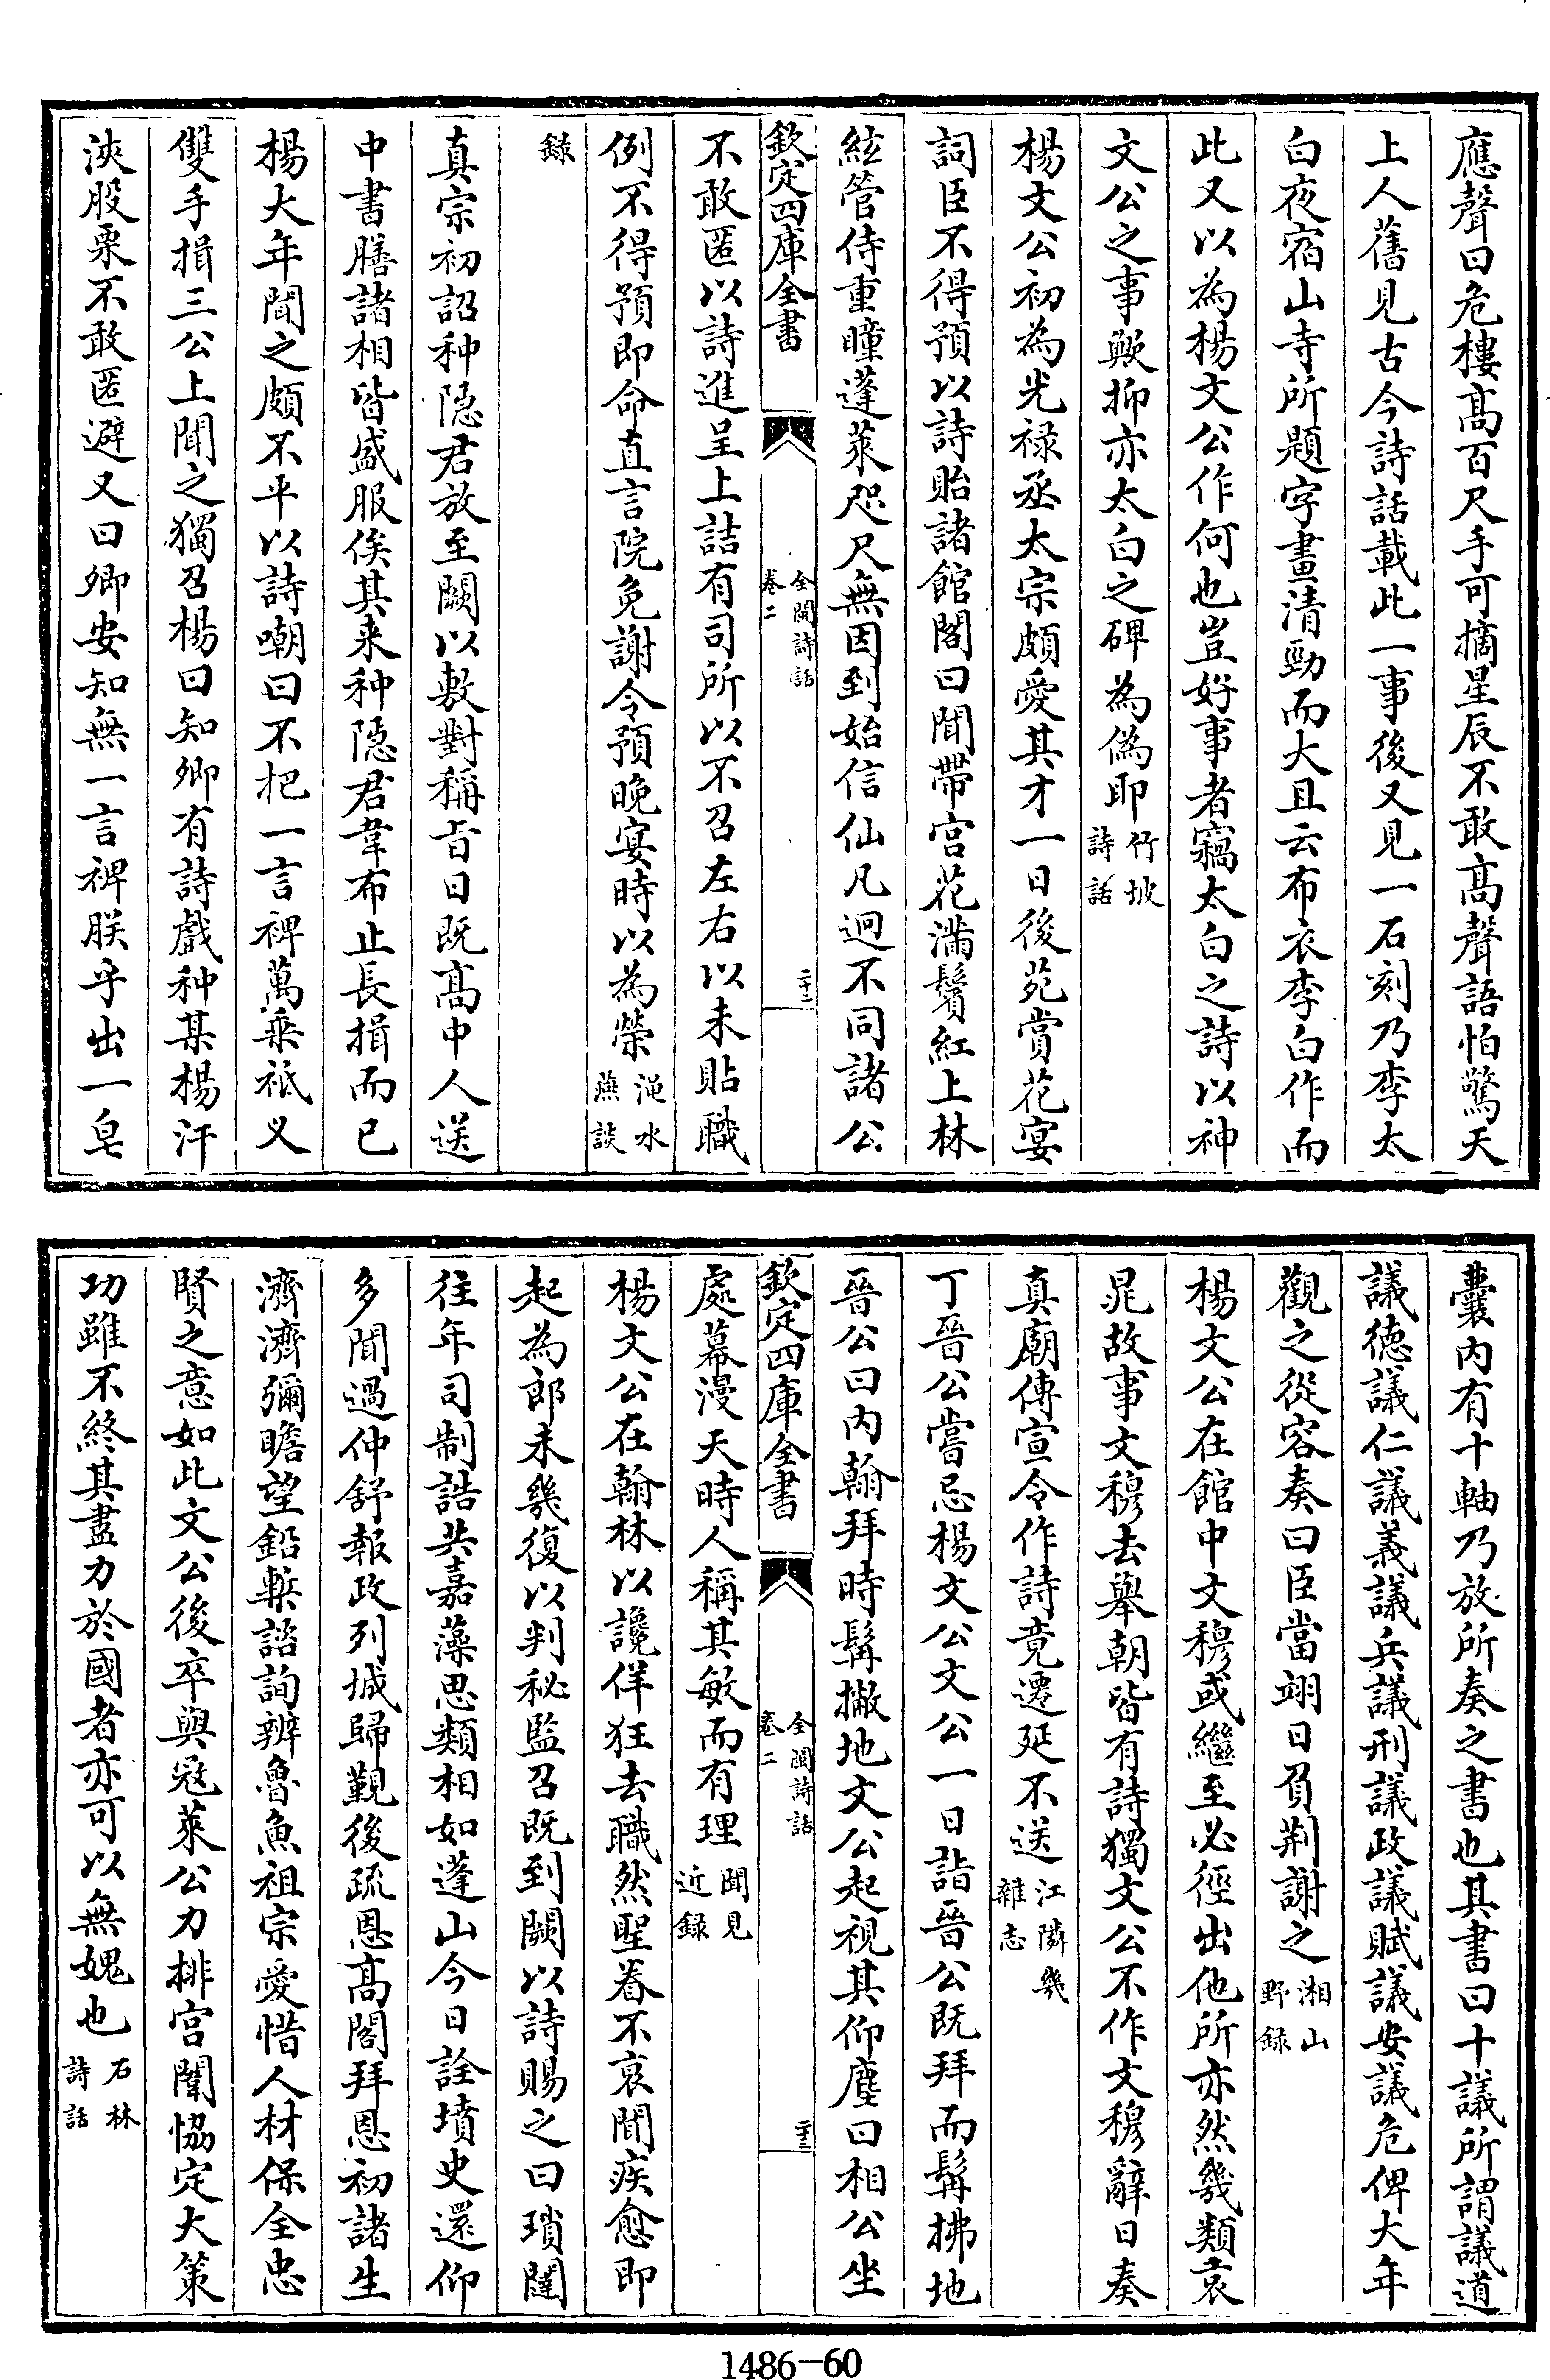 應聲曰危樓髙百尺手可摘星辰不敢髙聲語怕驚天
上人舊見古今詩話載此一事後又見一石刻乃李太
白夜宿山寺所題字畫清勁而大且云布衣李白作而
此又以為楊文公作何也豈好事者竊太白之詩以神
文公之事歟抑亦太白之碑為偽耶竹坡詩話
楊文公初為光禄丞太宗頗愛其才一日後苑賞花宴
詞臣不得預以詩貽諸館閣曰聞帶宫花滿鬢紅上林
絃管侍重瞳蓬萊咫尺無因到始信仙凡迥不同諸公
欽定四庫全書
全閩詩話
卷二
二十二
不敢匿以詩進呈上詰有司所以不召左右以未貼職
例不得預即命直言院免謝令預晚宴時以為榮渑水燕談
録
真宗初詔种隐君放至闕以敷對稱旨日既髙中人送
中書膳諸相皆盛服俟其来种隐君韋布止長揖而已
楊大年聞之頗不平以詩嘲曰不把一言裨萬乗祗义
雙手揖三公上聞之獨召楊曰知卿有詩戲种某楊汗
浹股栗不敢匿避又曰卿安知無一言裨朕乎出一皂
囊内有十軸乃放所奏之書也其書曰十議所謂議道
議徳議仁議義議兵議刑議政議賦議安議危俾大年
觀之從容奏曰臣當翊日負荆謝之湘山野録
楊文公在館中文穆或繼至必徑出他所亦然幾類袁
晁故事文穆去舉朝皆有詩獨文公不作文穆辭日奏
真廟傳宣令作詩竟遷延不送江隣幾雜志
丁晉公嘗忌楊文公文公一日詣晉公既拜而髯拂地
晉公曰内翰拜時髯撇地文公起視其仰塵曰相公坐
欽定四庫全書
全閩詩話
卷二
二十三
處幕漫天時人稱其敏而有理聞見近録
楊文公在翰林以讒佯狂去職然聖眷不衰聞疾愈即
起為郎未幾復以判秘監召既到闕以詩賜之曰瑣闥
往年司制誥共嘉藻思類相如蓬山今日詮墳史還仰
多聞過仲舒報政列城歸覲後疏恩髙閣拜恩初諸生
濟濟彌瞻望鉛槧諮詢辨魯魚祖宗愛惜人材保全忠
賢之意如此文公後卒與冦萊公力排宫闈恊定大策
功雖不終其盡力於國者亦可以無媿也石林詩話
1486—60